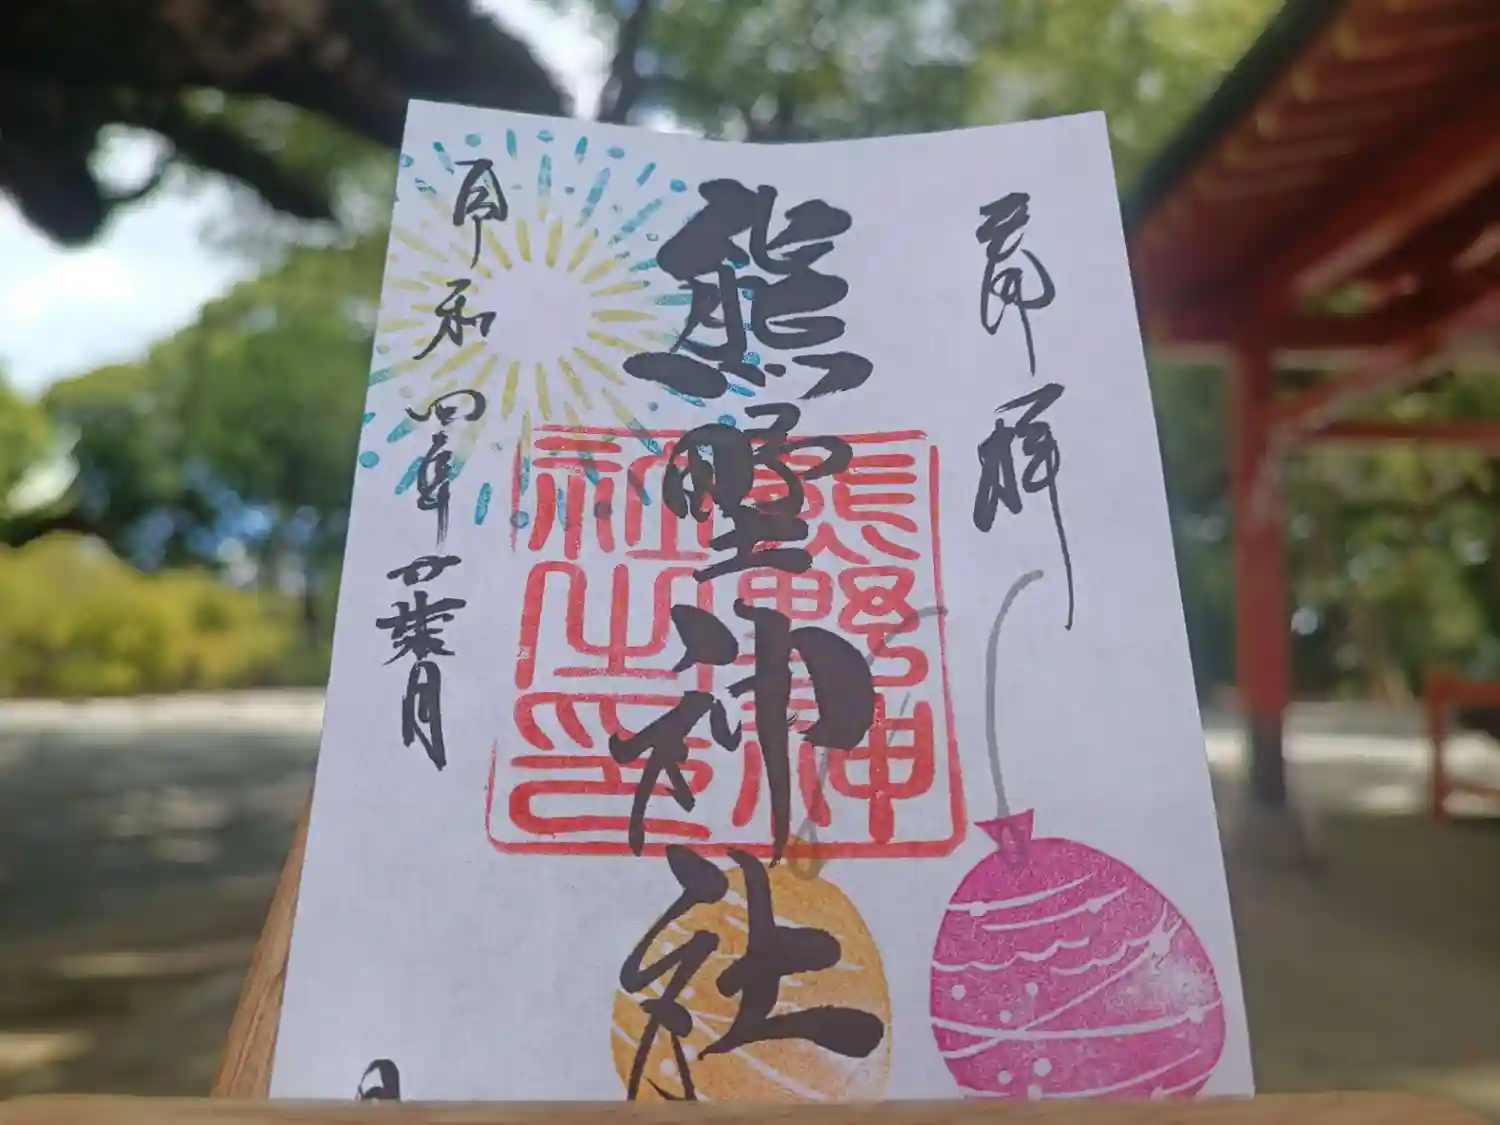 奉拝
熊野神社
熊野神
社之印
令和四年葉月